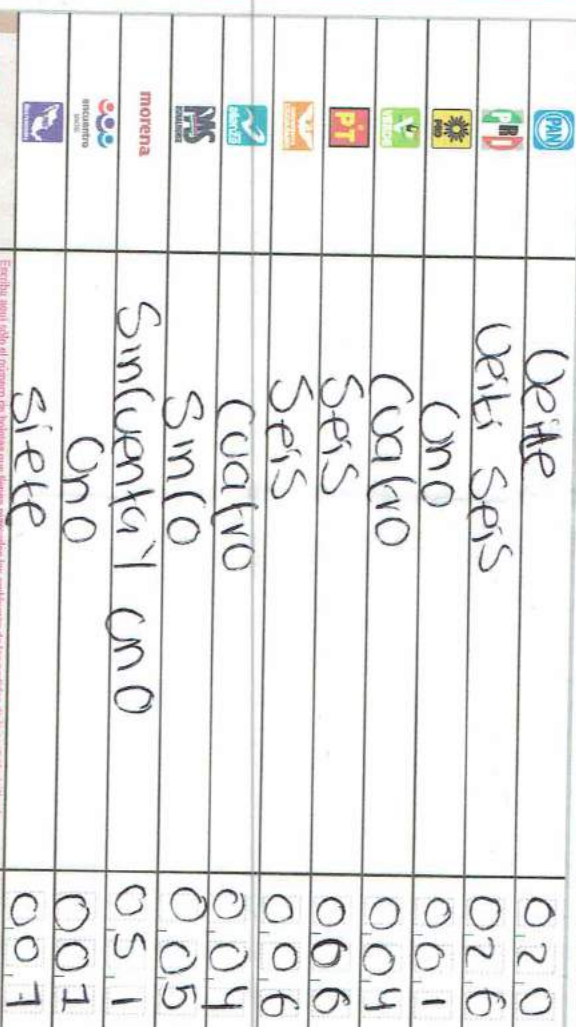 PAN Veite 020
PRI Veiti Seis 026
PRD Uno 001
VERDE Cuatro 004
PT Seis 066
Seis 006
alianza Cuatro 004
Sinco 005
morena Sincuenta Y uno 051
encuentro social Uno 001
Siete 007
Escriba aquí sólo el número de boletas que